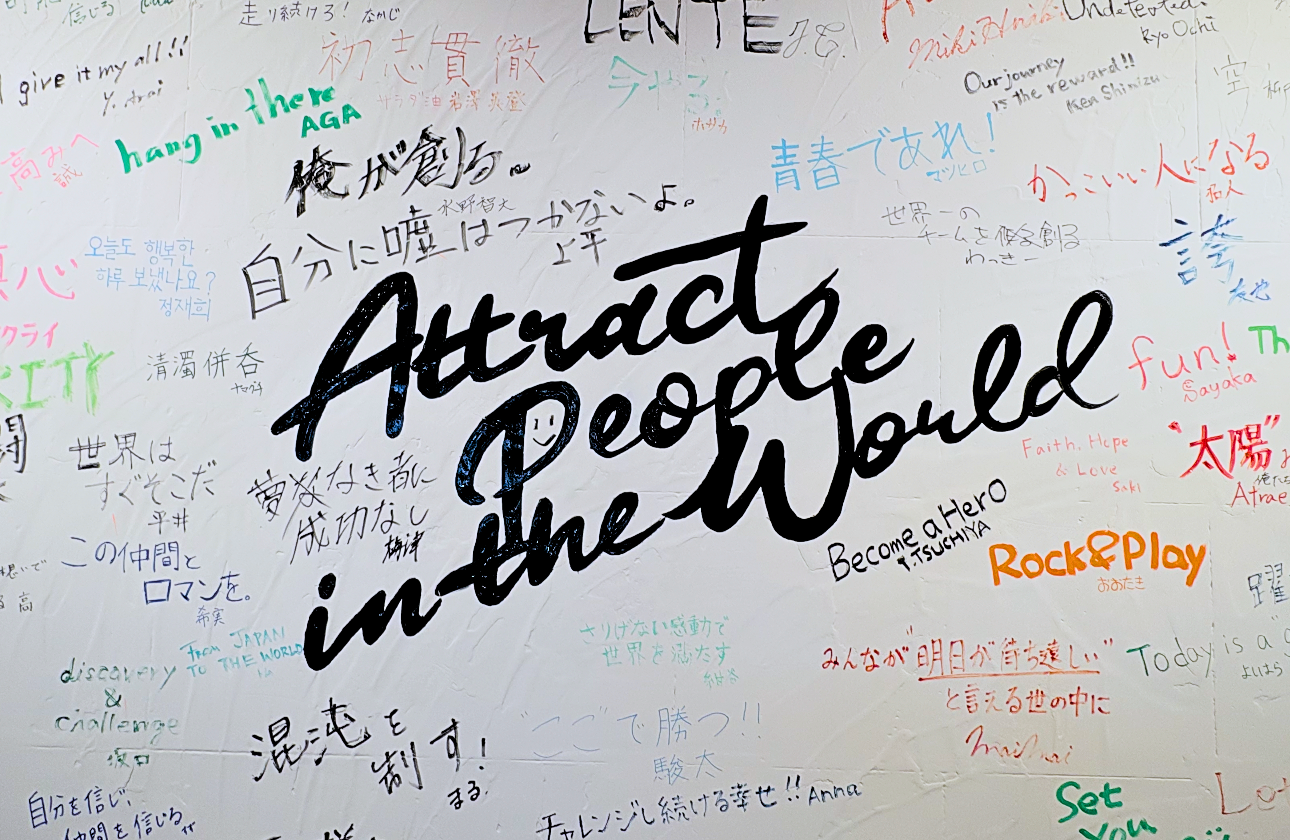 信じる
走り続けろ！ なかじ
LENTE
J.C.
Miki
Undefeated.
Ryo Ochi
give it my all!!
Y. Arai
初志貫徹
サラダ油 岩澤
今やる。
ホサカ
Our journey
is the reward!!
Ken Shimizu
空
hang in there
AGA
高みへ
誠
俺が創る。
水野智大
青春であれ！
マツヒロ
かっこいい人になる
自分に嘘はつかないよ。
上平
世界一の
チームを俺を創る
わっきー
誇
오늘도 행복한
하루 보냈나요?
정재희
心
クライ
清濁併呑
Attract
People
in the World
fun!
Sayaka
Th
世界は
すぐそこだ
平井
夢なき者に
成功なし
梅津
Faith. Hope
& Love
Saki
"太陽"
Atrae
Become a Hero
T.TSUCHIYA
Rock&Play
おおたき
この仲間と
ロマンを。
希実
躍
From JAPAN
TO THE WORLD
さりげない感動で
世界を満たす
みんなが"明日が待ち遠しい"
と言える世の中に
Today is a
よいはら
discovery
&
challenge
坂口
混沌を
制す！
まる。
ここで勝つ!!
駿太
チャレンジし続ける幸せ!! Anna
自分を信じ、
仲間を信じる
Set
You
Lot